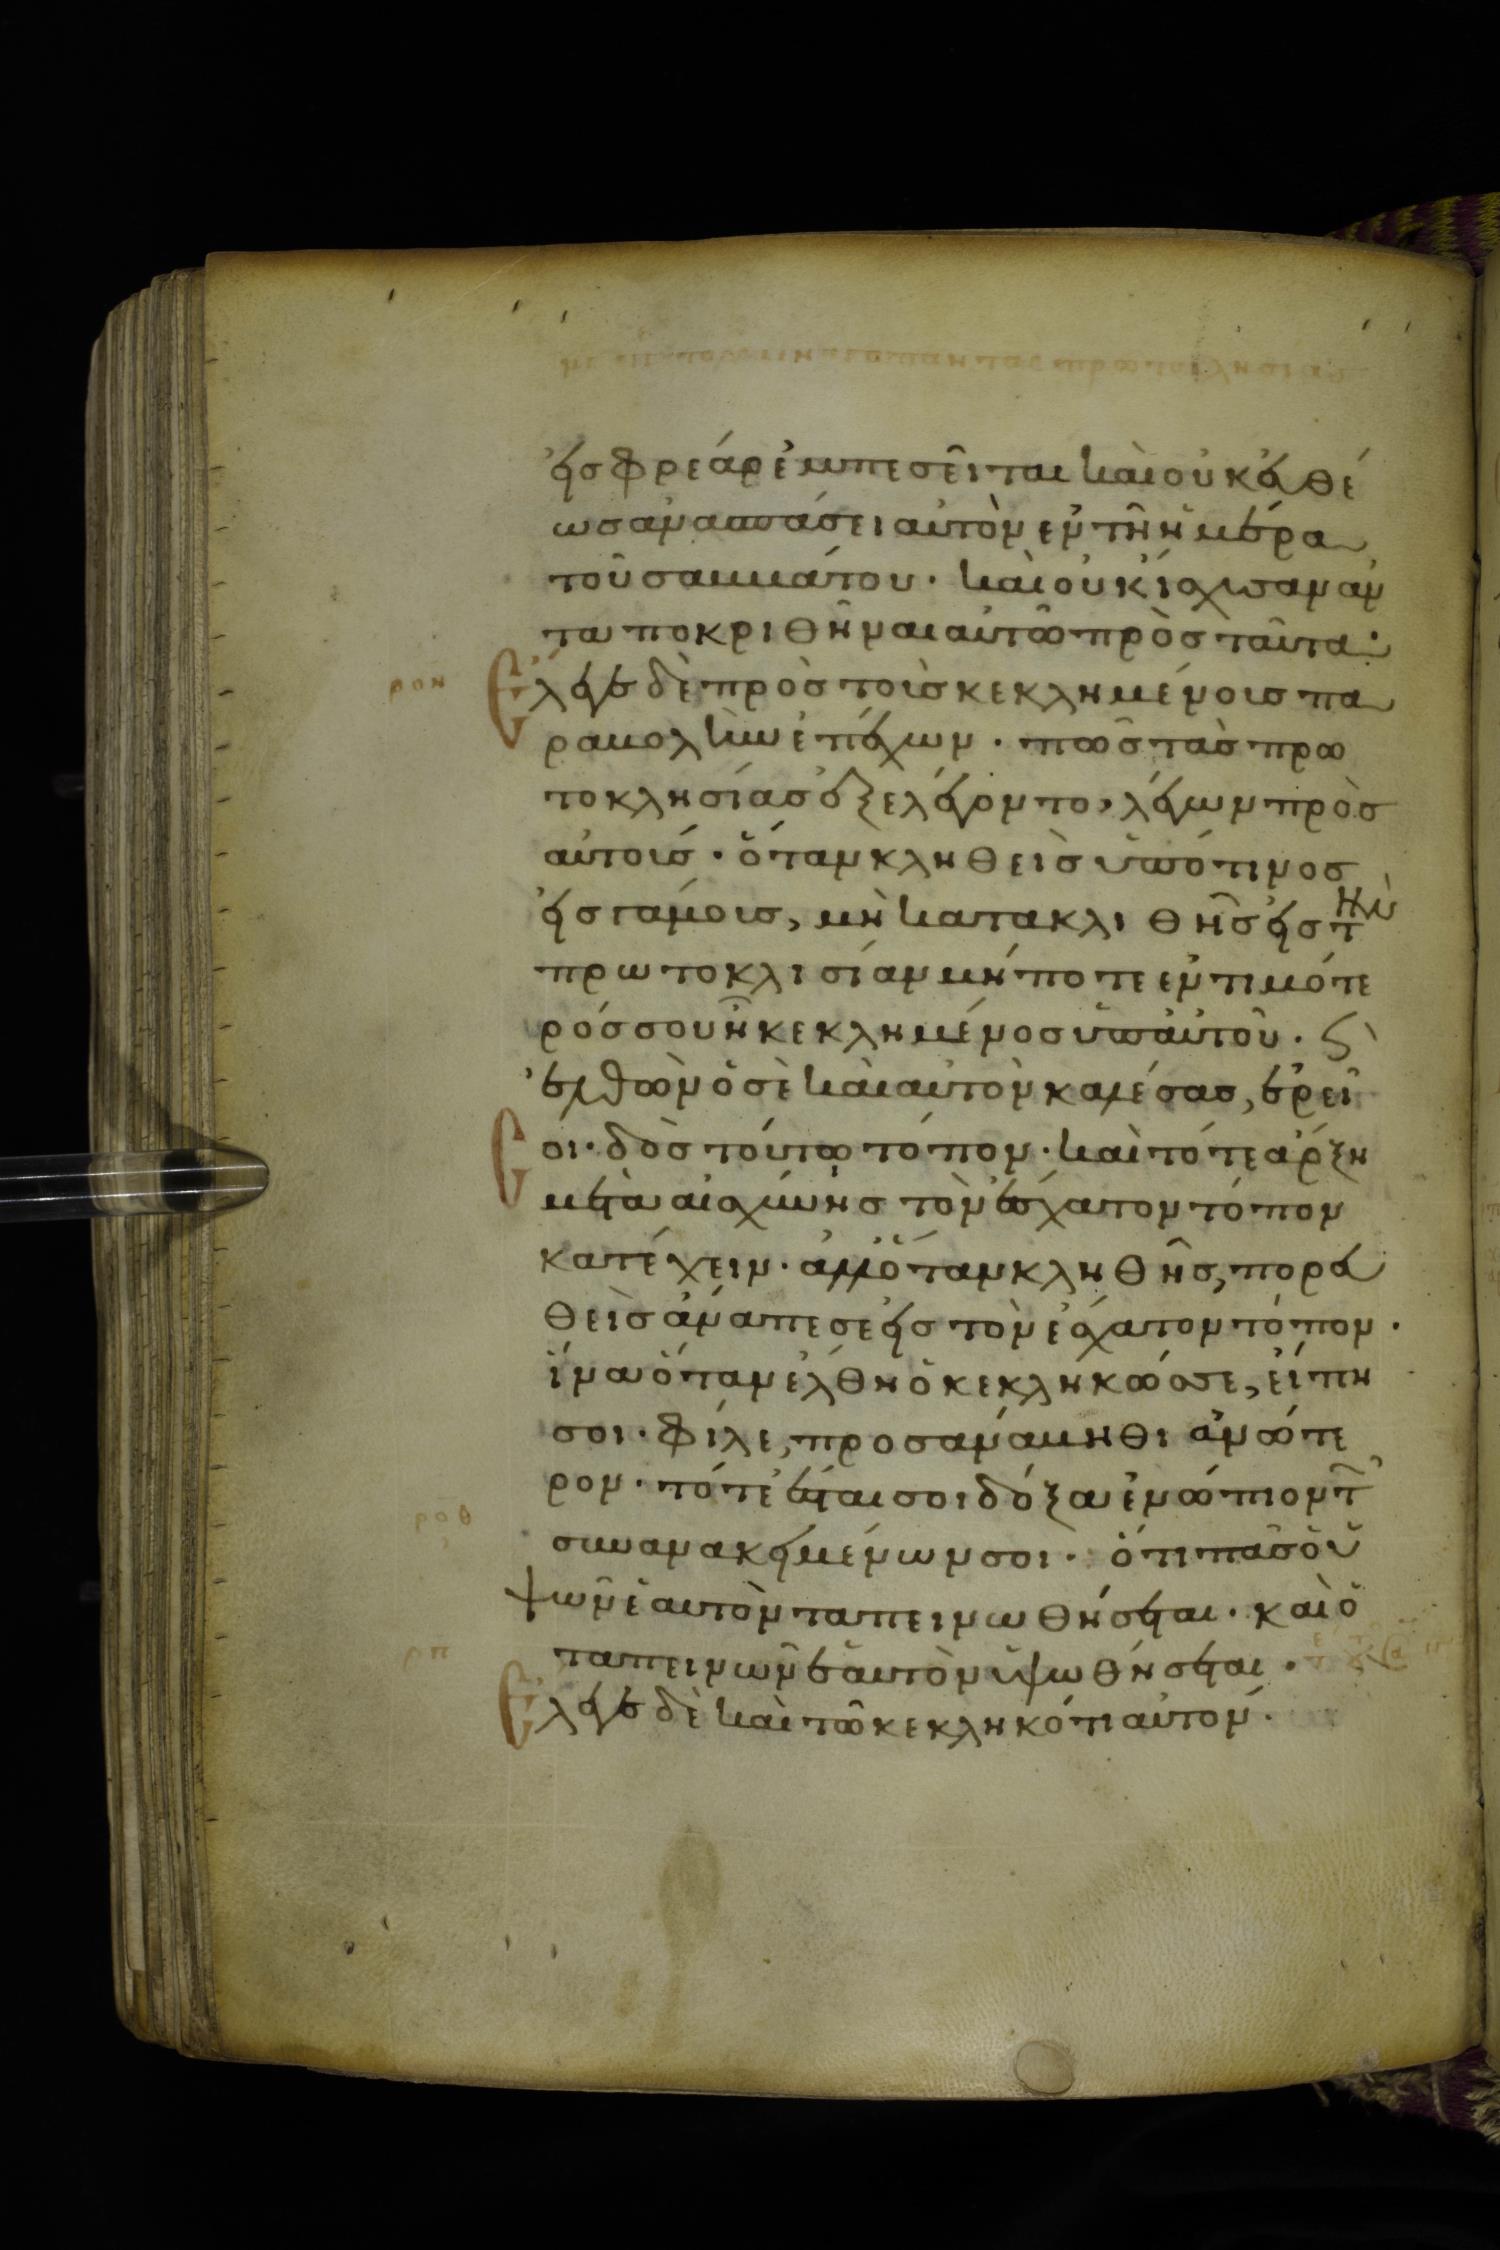 εἰς φρέαρ ἐμπεσεῖται καὶ οὐκ εὐθέ
ως ἀνασπάσει αὐτὸν ἐν τῆ ἡμέρα
τοῦ σαββάτου· καὶ οὐκ ἴσχυσαν ἀν
ταποκριθῆναι αὐτῶ πρὸς ταῦτα·
ροη Ἔλεγε δὲ πρὸς τοὺς κεκλημένους πα
ραβολὴν ἐπέχων· πῶς τὰς πρω
τοκλησίας ἐξελέγοντο, λέγων πρὸς
αὐτούς· ὅταν κληθεὶς ὑπό τινος
εἰς γάμους, μὴ κατακλιθῆς εἰς τὴν
πρωτοκλισίαν μήποτε ἐντιμότε
ρός σου ἦ κεκλημένος ὑπ' αὐτοῦ· ϛ
ἐλθὼν ὁ σὲ καὶ αὐτὸν καλέσας, ἐρεῖ
σοι· δὸς τούτω τόπον· καὶ τότε ἄρξη
μετὰ αἰσχύνης τὸν ἔσχατον τόπον
κατέχειν· ἀλλ' ὅταν κληθῆς, πορευ
θεὶς ἀνάπεσε εἰς τὸν ἔσχατον τόπον·
ἵνα ὅταν ἔλθη ὁ κεκληκώς σε, εἴπη
σοι· φίλε, προσανάβηθι ἀνώτε
ρον· τότε ἔσται σοι δόξα ἐνώπιον τῶν
ροθ συνανακειμένων σοι· ὅτι πᾶς ὁ ὑ
ψῶν ἑαυτὸν ταπεινωθήσεται· καὶ ὁ
ρπ ταπεινῶν ἑαυτὸν ὑψωθήσεται·
Ἔλεγε δὲ καὶ τῶ κεκληκότι αὐτόν·